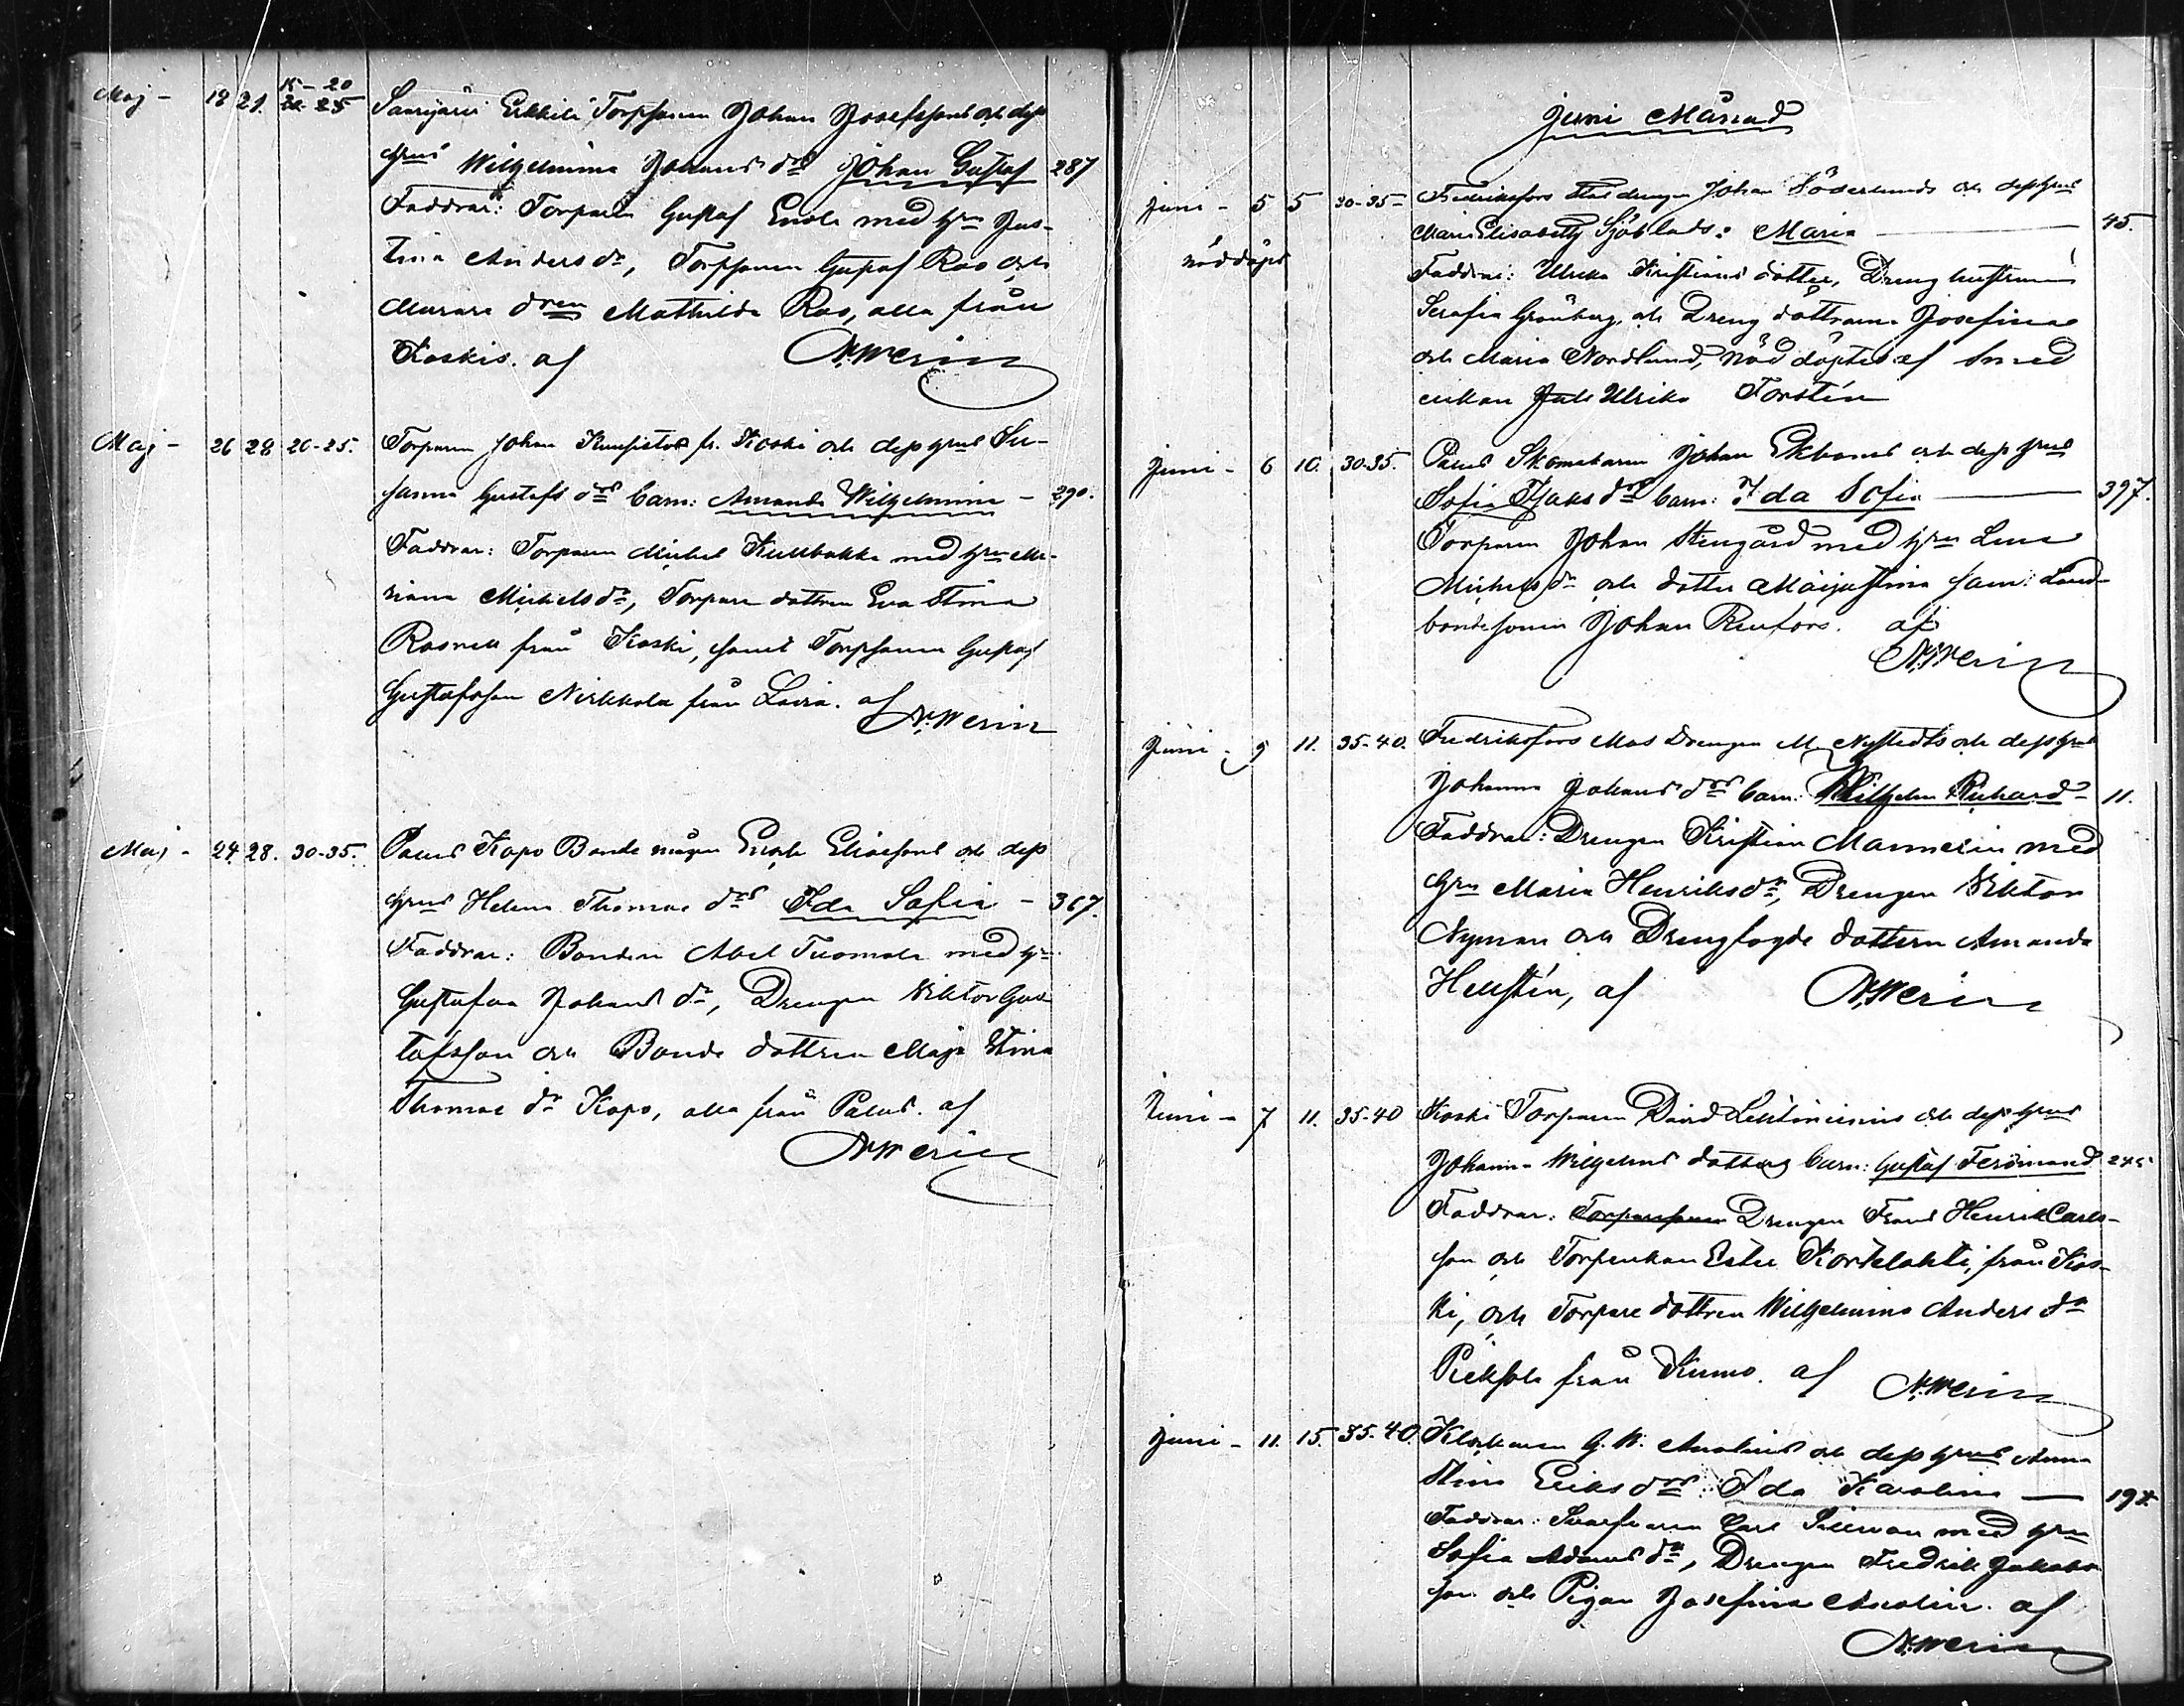 Maj - 18 21. 15-20 20-25 Saarijärvi Erkkilä Torpsonen Johan Josefssons och dess
hrus Wilhelmina Johans drs Johan Gustaf 287
Faddrar: Torparen Gustaf Enola med hru Jus-
tina Anders dr, Torpsonen Gustaf Rao och
Murare dren Mathilda Rao, alla från
Koskis. af N.Werin
Maj - 26 28 20-25. Torparen Johan fr. Koski och dess hrus Su-
sanna Gustafs drs barn: Amanda Wilhelmina - 290.
Faddrar: Torparen Michel Kullbakka med hru Ma-
riana Michels dr, Torpare dottren Eva Stina
från Koski, samt Torpsonen Gustaf
Gustafsson Nirkkola från Lavia. af
N.Werin
Maj - 24 28. 30-35. Palus Kapo Bonde mågen Enok Eliassons och dess
hrus Helena Thomas drs Ida Sofia - 367.
Faddrar: Bonden Abel Tuomola med hru
Gustafva Johans dr, Drengen Viktor Gus-
tafsson och Bonde dottren Maja Stina
Thomas dr Kapo, alla från Palus. af
N.Werin
Juni Månad
Juni - 5 5 30-35 - Fredriksfors Stal drengen Johan Söderlunds och dess hrus
Maria Elisabeth Sjöblads: Maria 45.
nöddöpt Faddrar: Ulrika Kristians dotter, Dreng hustrun
Serafia Grönberg, och Dreng döttrarna Josefina
och Maria Nordlund, nöddöptes af Smed
enkan Ulrika Forstén
Juni - 6 10. 30-35. Palus Skomakaren Johan Ekboms och dess hrus
Sofia Isaks drs barn: Ida Sofia 397.
Torparen Johan Stengård med hru Lena
Michels dr och dotter Majastina samt Land-
bondesonen Johan Renfors. af
N.Werin
Juni - 9 11. 35-40. Fredriksfors Mas Drengen M. Nystedts och dess hrus
Johanna Johans drs barn: Wilhelm Richard - 11.
Faddrar: Drengen Kristian Mannerin med
hru Maria Henriks dr, Drengen Viktor
Nyman och Drengfogde dottern Amanda
Hellstén, af N.Werin
Juni - 7 11. 35-40 Koski Torparen David Lehtiniemis och dess hrus
Johanna Wilhelms dotters barn: Gustaf Ferdinand 245
Faddrar: Torparesonen Drengen Frans Henrik Carls-
son och Torpenkan Ester Kortelahti, från Kos-
ki, och Torpare dottren Wilhelmina Anders dr
från Kumo. af N.Werin
Juni - 11. 15. 35-40. Klockaren G. W. Anolins och dess hrus Anna
Stina Eriks drs: Ida Karolina 192.
Faddrar: Carl med hru
Sofia Adams dr, Drengen Fredrik Jakobs-
son och Pigan Josefina Anolin. af
N.Werin